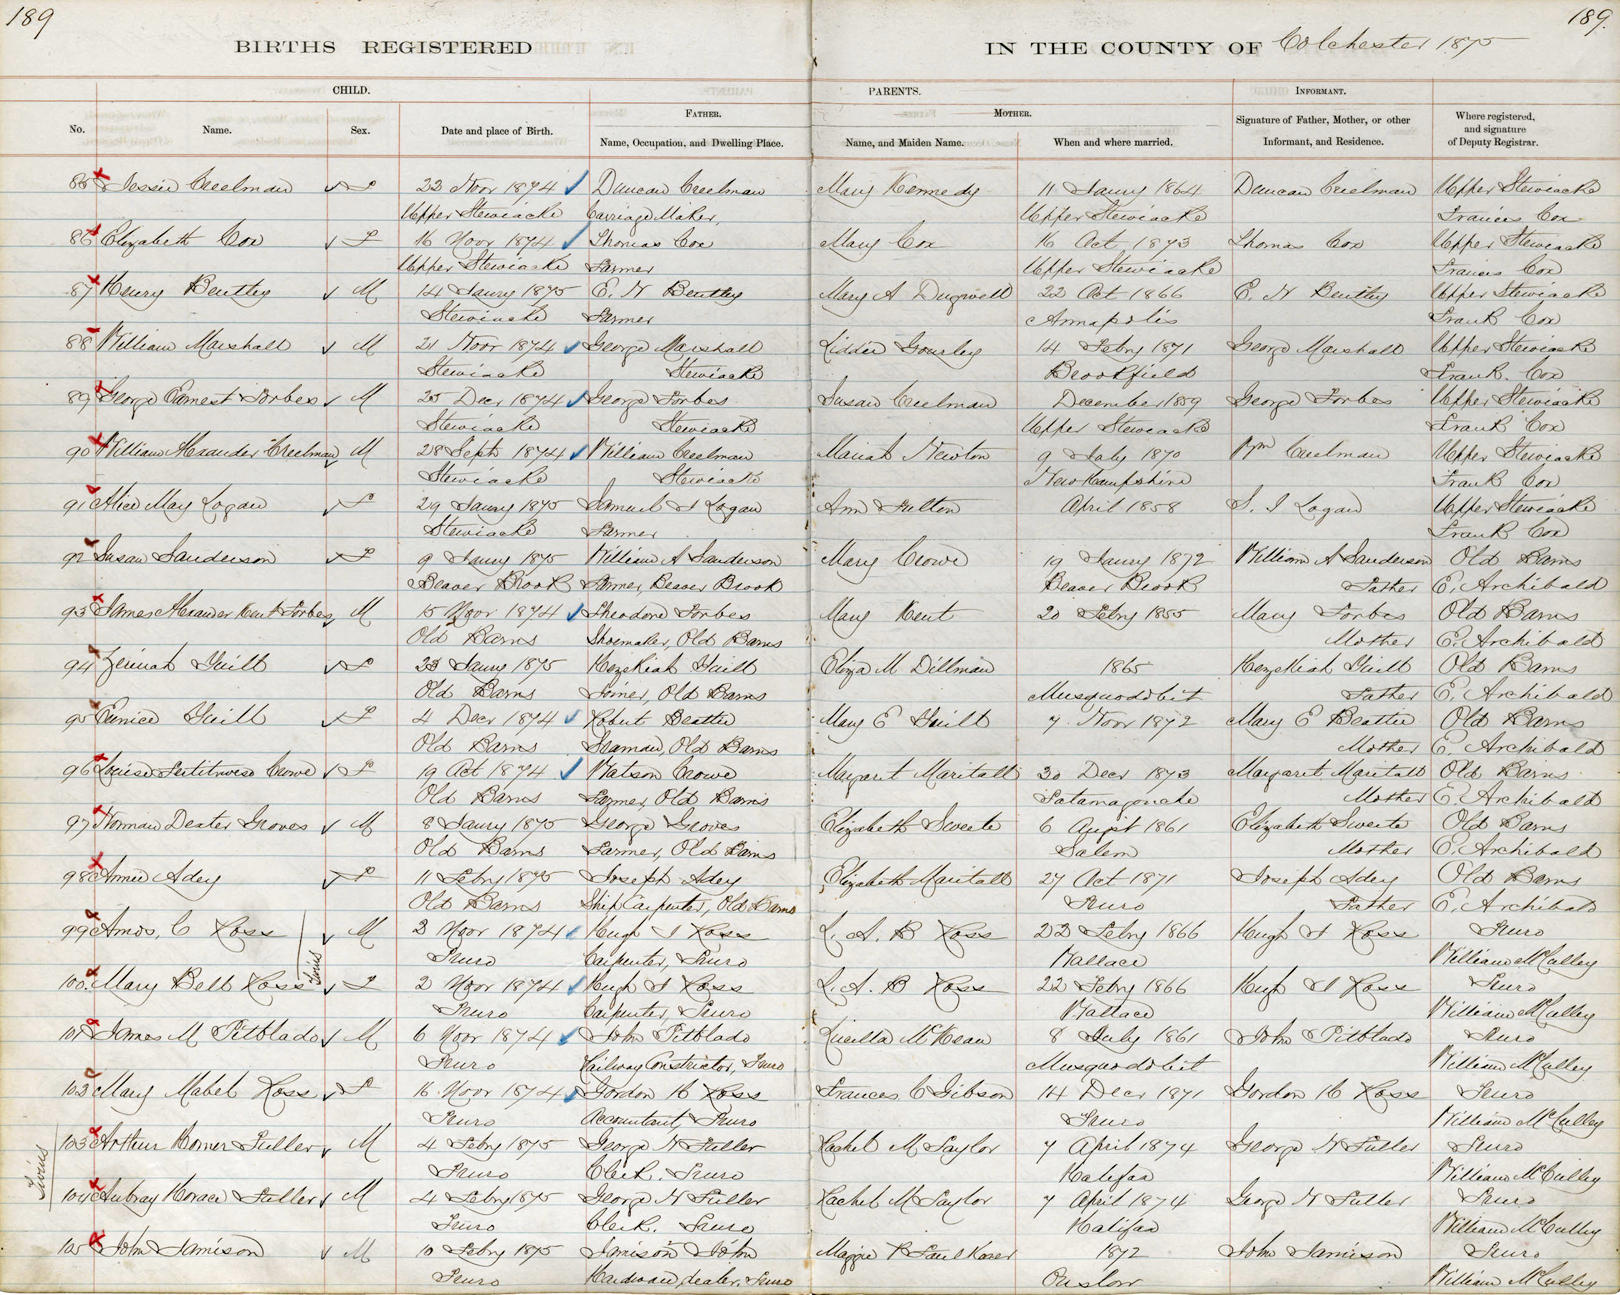 189
189.
BIRTHS REGISTERED
IN THE COUNTY OF Colchester 1875
CHILD.
PARENTS.
INFORMANT.
FATHER.
MOTHER.
No.
Name.
Sex.
Date and place of Birth.
Name, Occupation, and Dwelling Place.
Name, and Maiden Name.
When and where married.
Signature of Father, Mother, or other
Informant, and Residence.
Where registered,
and signature
of Deputy Registrar.
85 Jessie Creelman F 22 Novr 1874 Duncan Creelman Mary Kennedy 11 Jany 1864 Duncan Creelman Upper Stewiacke
Upper Stewiacke Carriage Maker, Upper Stewiacke Francis Cox
86 Elizabeth Cox F 16 Novr 1874 Thomas Cox Mary Cox 16 Oct 1873 Thomas Cox Upper Stewiacke
Upper Stewiacke Farmer Upper Stewiacke Francis Cox
87 Henry Bentley M 14 Jany 1875 E. N Bentley Mary A 22 Oct 1866 E. N Bentley Upper Stewiacke
Stewiacke Farmer Annapolis Frank Cox
88 William Marshall M 21 Novr 1874 George Marshall Liddia Gourley 14 Febry 1871 George Marshall Upper Stewiacke
Stewiacke Stewiacke Brookfield Frank. Cox
89 George Earnest Forbes M 25 Decr 1874 George Forbes Susan Creelman December 1859 George Forbes Upper Stewiacke
Stewiacke Stewiacke Upper Stewiacke Frank Cox
90 William Alexander Creelman M 28 Sept 1874 William Creelman Mariah Newton 9 July 1870 Wm Creelman Upper Stewiacke
Stewiacke Stewiacke New Hampshire Frank Cox
91 Alice May Logan F 29 Jany 1875 Samuel I Logan Ann Fulton April 1858 S. I Logan Upper Stewiacke
Stewiacke Farmer Frank Cox
92 Susan Sanderson F 9 Jany 1875 William A Sanderson Mary Crowe 19 Jany 1872 William A Sanderson Old Barns
Beaver Brook Farmer, Beaver Brook Beaver Brook Father E. Archibald
93 James Alexander Kent Forbes M 15 Novr 1874 Theodore Forbes Mary Kent 20 Febry 1855 Mary Forbes Old Barns
Old Barns Shoemaker, Old Barns Mother E. Archibald
94 Zeruiah Yuill F 23 Jany 1875 Hezekiah Yuill Eliza M Dillman 1865 Hezekiah Yuill Old Barns
Old Barns Joiner, Old Barns Musquodobit Father E. Archibald
95 Eunice Yuill F 4 Decr 1874 Robert Beattie Mary E Yuill 7 Novr 1872 Mary E Beattie Old Barns
Old Barns Seaman, Old Barns Mother E. Archibald
96 Louisa Crowe F 19 Oct 1874 Watson Crowe Margaret Maritall 30 Decr 1873 Margaret Maritall Old Barns
Old Barns Farmer, Old Barns Tatamagouche Mother E. Archibald
97 Norman Dexter Groves M 8 Jany 1875 George Groves Elizabeth Sweete 6 Augst 1861 Elizabeth Sweete Old Barns
Old Barns Farmer, Old Barns Salem Mother E. Archibald
98 Annie Adey F 11 Febry 1875 Joseph Adey Elizabeth Maritall 27 Oct 1871 Joseph Adey Old Barns
Old Barns Ship Carpenter, Old Barns Truro Father E. Archibald
99 Amos, C Ross M 2 Novr 1874 Hugh I Ross L. A. B Ross 22 Febry 1866 Hugh I Ross Truro
Truro Carpenter, Truro Wallace William McCulley
Twins
100. Mary Bell Ross F 2 Novr 1874 Hugh I Ross L. A. B Ross 22 Febry 1866 Hugh I Ross Truro
Truro Carpenter, Truro Wallace William McCulley
101 James M Pitblado M 6 Novr 1874 John Pitblado Lucilla McKean 8 July 1861 John Pitblado Truro
Truro Railway Constrictor, Truro Musquodobit William McCulley
103 Mary Mabel Ross F 16 Novr 1874 Gordon H Ross Frances C Gibson 14 Decr 1871 Gordon H Ross Truro
Truro Accountant, Truro Truro William McCulley
Twins
103 Arthur Homer Fuller M 4 Febry 1875 George N Fuller Rachel M Taylor 7 April 1874 George N Fuller Truro
Truro Clerk. Truro Halifax William McCulley
104 Aubray Horace Fuller M 4 Febry 1875 George N Fuller Rachel M Taylor 7 April 1874 George N Fuller Truro
Truro Clerk. Truro Halifax William McCulley
105 John Jamison M 10 Febry 1875 Jamison John Maggie 1872 John Jamieson Truro
Truro Hardware, dealer, Truro Onslow William McCulley